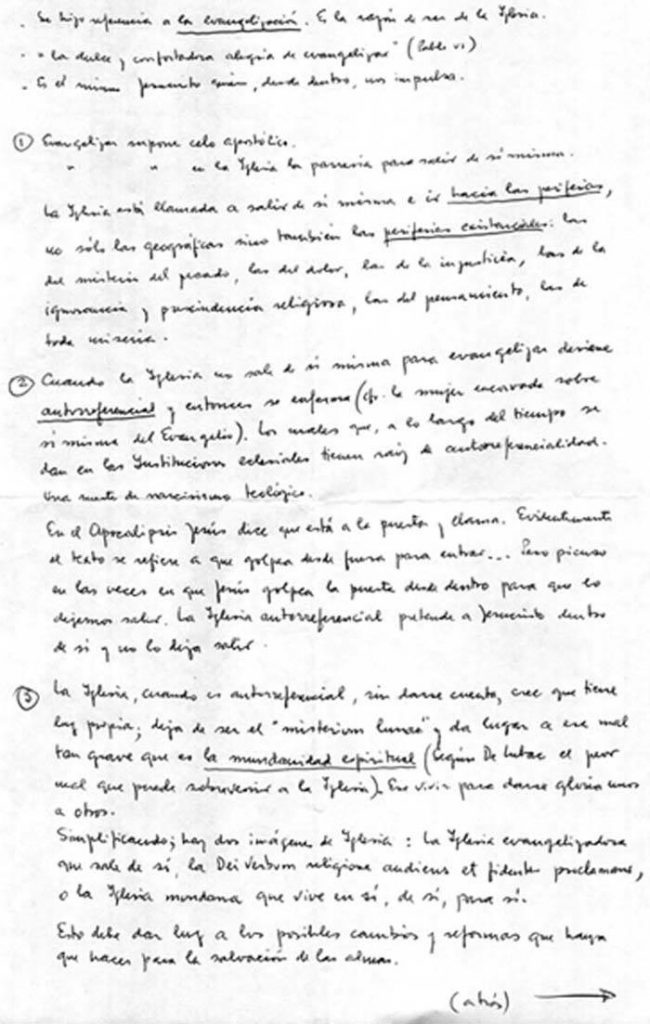 - Se hizo referencia a la evangelización. Es la razón de ser de la Iglesia.
- "la dulce y confortadora alegría de evangelizar" (Pablo VI)
- Es el mismo Jesucristo quien, desde dentro, nos impulsa.
① Evangelizar supone celo apostólico.
" " en la Iglesia la parresía para salir de sí misma.
La Iglesia está llamada a salir de sí misma e ir hacia las periferias,
no sólo las geográficas sino también las periferias existenciales: las
del misterio del pecado, las del dolor, las de la injusticia, las de la
ignorancia y prescindencia religiosa, las del pensamiento, las de
toda miseria.
② Cuando la Iglesia no sale de sí misma para evangelizar deviene
autorreferencial y entonces se enferma (cfr. la mujer encorvada sobre
sí misma del Evangelio). Los males que, a lo largo del tiempo se
dan en las Instituciones eclesiales tienen raíz de autorreferencialidad.
Una suerte de narcisismo teológico.
En el Apocalipsis Jesús dice que está a la puerta y llama. Evidentemente
el texto se refiere a que golpea desde fuera para entrar... Pero pienso
en las veces en que Jesús golpea la puerta desde dentro para que lo
dejemos salir. La Iglesia autorreferencial pretende a Jesucristo dentro
de sí y no lo deja salir.
③ La Iglesia, cuando es autorreferencial, sin darse cuenta, cree que tiene
luz propia; deja de ser el "misterium lunae" y da lugar a ese mal
tan grave que es la mundanidad espiritual (Según De Lubac el peor
mal que puede sobrevenir a la Iglesia). Ese vivir para darse gloria unos
a otros.
Simplificando; hay dos imágenes de Iglesia: la Iglesia evangelizadora
que sale de sí, la Dei Verbum religiose audiens et fidenter proclamans,
o la Iglesia mundana que vive en sí, de sí, para sí.
Esto debe dar luz a los posibles cambios y reformas que haya
que hacer para la salvación de las almas.
(atrás) →